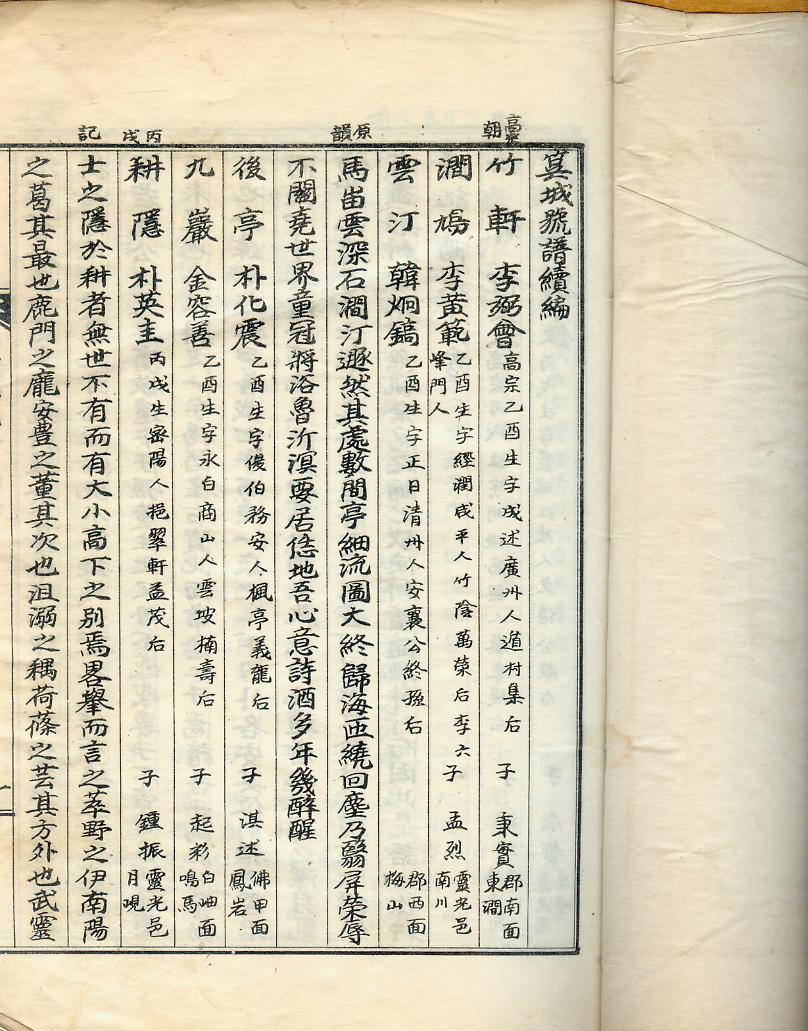 箕城號譜續編
高宗朝
竹軒 李弼會 高宗乙酉生字成述廣州人遁村集后 子 秉實 郡南面東澗
澗鳩 李黃範 乙酉生字經潤咸平人竹陰萬榮后李六峰門人 子 孟烈 靈光邑南川
雲汀 韓炯鎬 乙酉生字正日清州人安襄公終孫后 郡西面梅山
原韻
馬峀雲深石澗汀遯然其處數間亭細流圖大終歸海西繞回塵乃翳屏榮辱
不關堯世界童冠將浴魯沂溟要居恁地吾心意詩酒多年幾醉醒
後亭 朴化震 乙酉生字俊伯務安人楓亭義龍后 子 淇述 佛甲面鳳岩
九巖 金容善 乙酉生字永白商山人雲坡楠壽后 子 起彩 白岫面鳴馬
丙戌
耕隱 朴英圭 丙戌生密陽人挹翠軒益茂后 子 鍾振 靈光邑月峴
記
士之隱於耕者無世不有而有大小高下之別焉畧擧而言之莘野之伊南陽
之葛其最也鹿門之龐安豊之董其次也沮溺之耦荷蓧之芸其方外也武靈